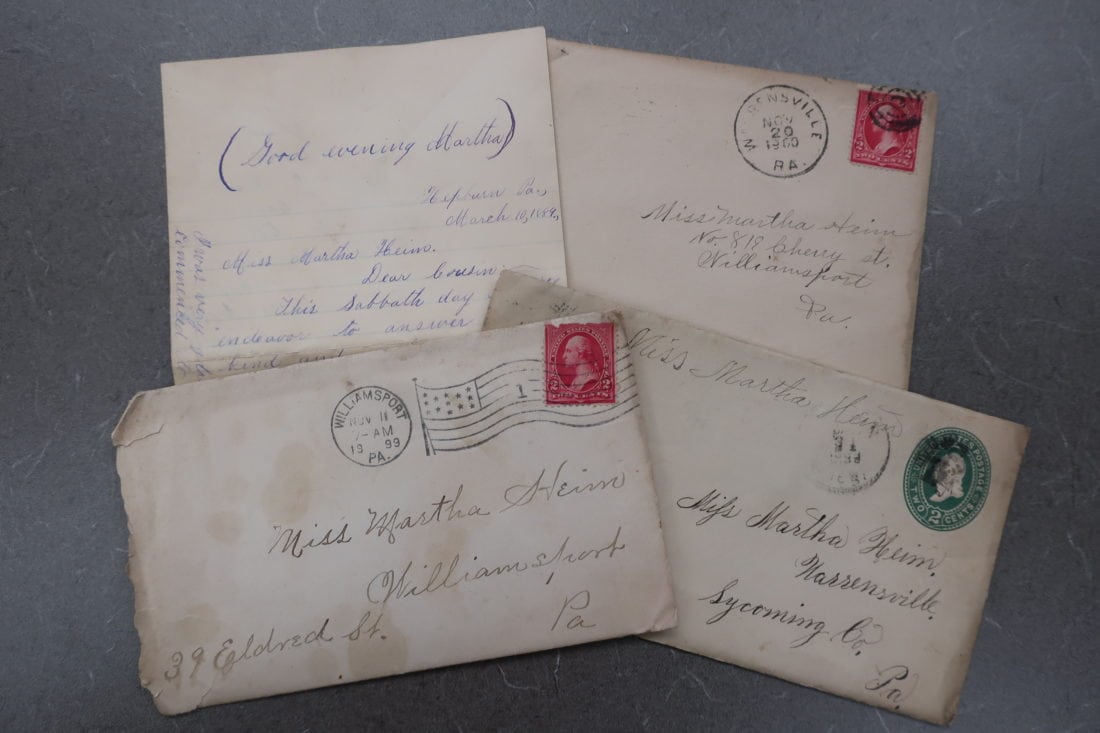 (Good evening Martha)
Hepburn Pa,
March 10, 1889,
Miss Martha Heim.
Dear Cousin
This Sabbath day
endeavor to answer
kind and
I was very
WARRENSVILLE
NOV
20
1900
PA.
2 2
TWO CENTS
Miss Martha Heim
No. 818 Cherry st.
Williamsport
Pa.
WILLIAMSPORT
NOV 11
7-AM
19 99
PA.
1
2 2
TWO CENTS
Miss Martha Heim
Williamsport
Pa
39 Eldred St.
Miss Martha Heim
UNITED STATES POSTAGE
TWO 2 CENTS
Miss Martha Heim.
Warrensville.
Lycoming Co.
Pa.